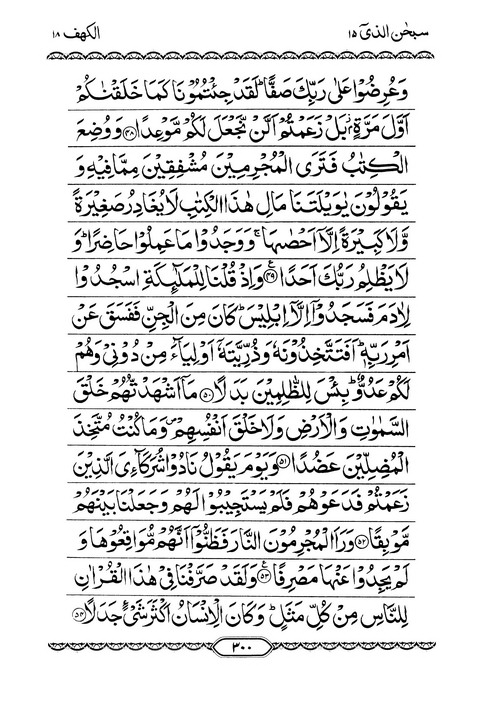 سبحٰن الذیٓ ۱۵
الكهف ۱۸
وَعُرِضُوْا عَلٰى رَبِّكَ صَفًّا ؕ لَقَدْ جِئْتُمُوْنَا كَمَا خَلَقْنٰكُمْ
اَوَّلَ مَرَّةٍۭ ز بَلْ زَعَمْتُمْ اَلَّنْ نَّجْعَلَ لَكُمْ مَّوْعِدًا ﴿۴۸﴾ وَوُضِعَ
الْكِتٰبُ فَتَرَى الْمُجْرِمِيْنَ مُشْفِقِيْنَ مِمَّا فِيْهِ وَ
يَقُوْلُوْنَ يٰوَيْلَتَنَا مَالِ هٰذَا الْكِتٰبِ لَا يُغَادِرُ صَغِيْرَةً
وَّلَا كَبِيْرَةً اِلَّاۤ اَحْصٰىهَا ۚ وَوَجَدُوْا مَا عَمِلُوْا حَاضِرًا ؕ وَ
لَا يَظْلِمُ رَبُّكَ اَحَدًا ﴿۴۹﴾ وَاِذْ قُلْنَا لِلْمَلٰٓئِكَةِ اسْجُدُوْا
لِاٰدَمَ فَسَجَدُوْۤا اِلَّاۤ اِبْلِيْسَ ؕ كَانَ مِنَ الْجِنِّ فَفَسَقَ عَنْ
اَمْرِ رَبِّهٖ ؕ اَفَتَتَّخِذُوْنَهٗ وَذُرِّيَّتَهٗۤ اَوْلِيَآءَ مِنْ دُوْنِيْ وَهُمْ
لَكُمْ عَدُوٌّ ؕ بِئْسَ لِلظّٰلِمِيْنَ بَدَلًا ﴿۵۰﴾ مَاۤ اَشْهَدْتُّهُمْ خَلْقَ
السَّمٰوٰتِ وَالْاَرْضِ وَلَا خَلْقَ اَنْفُسِهِمْ ص وَمَا كُنْتُ مُتَّخِذَ
الْمُضِلِّيْنَ عَضُدًا ﴿۵۱﴾ وَيَوْمَ يَقُوْلُ نَادُوْا شُرَكَآءِيَ الَّذِيْنَ
زَعَمْتُمْ فَدَعَوْهُمْ فَلَمْ يَسْتَجِيْبُوْا لَهُمْ وَجَعَلْنَا بَيْنَهُمْ
مَّوْبِقًا ﴿۵۲﴾ وَرَاَ الْمُجْرِمُوْنَ النَّارَ فَظَنُّوْۤا اَنَّهُمْ مُّوَاقِعُوْهَا وَ
لَمْ يَجِدُوْا عَنْهَا مَصْرِفًا ﴿۵۳﴾ وَلَقَدْ صَرَّفْنَا فِيْ هٰذَا الْقُرْاٰنِ
لِلنَّاسِ مِنْ كُلِّ مَثَلٍ ؕ وَكَانَ الْاِنْسَانُ اَكْثَرَ شَيْءٍ جَدَلًا ﴿۵۴﴾
۳۰۰